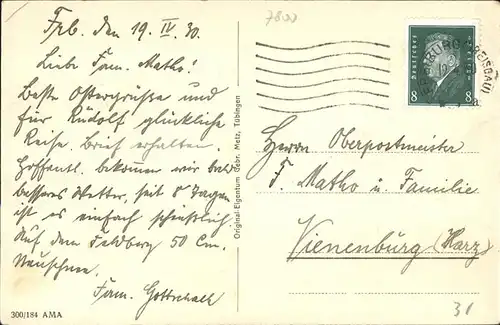 7800
Frb. den 19. IV. 30.
Liebe Fam. Matho!
Beste Ostergrüße und
für Rudolf glückliche
Reise. Brief erhalten.
Hoffentl. bekommen wir bald
besseres Wetter, seit 8 Tagen
ist es einfach scheußlich.
Auf dem Feldberg 50 Cm.
Neuschnee.
Fam. Gottschalk
300/184 AMA
Original-Eigentum Gebr. Metz, Tübingen
FREIBURG (BREISGAU)
Deutsches Reich
8 8
Herrn Oberpostmeister
F. Matho u. Familie
Vienenburg (Harz)
31